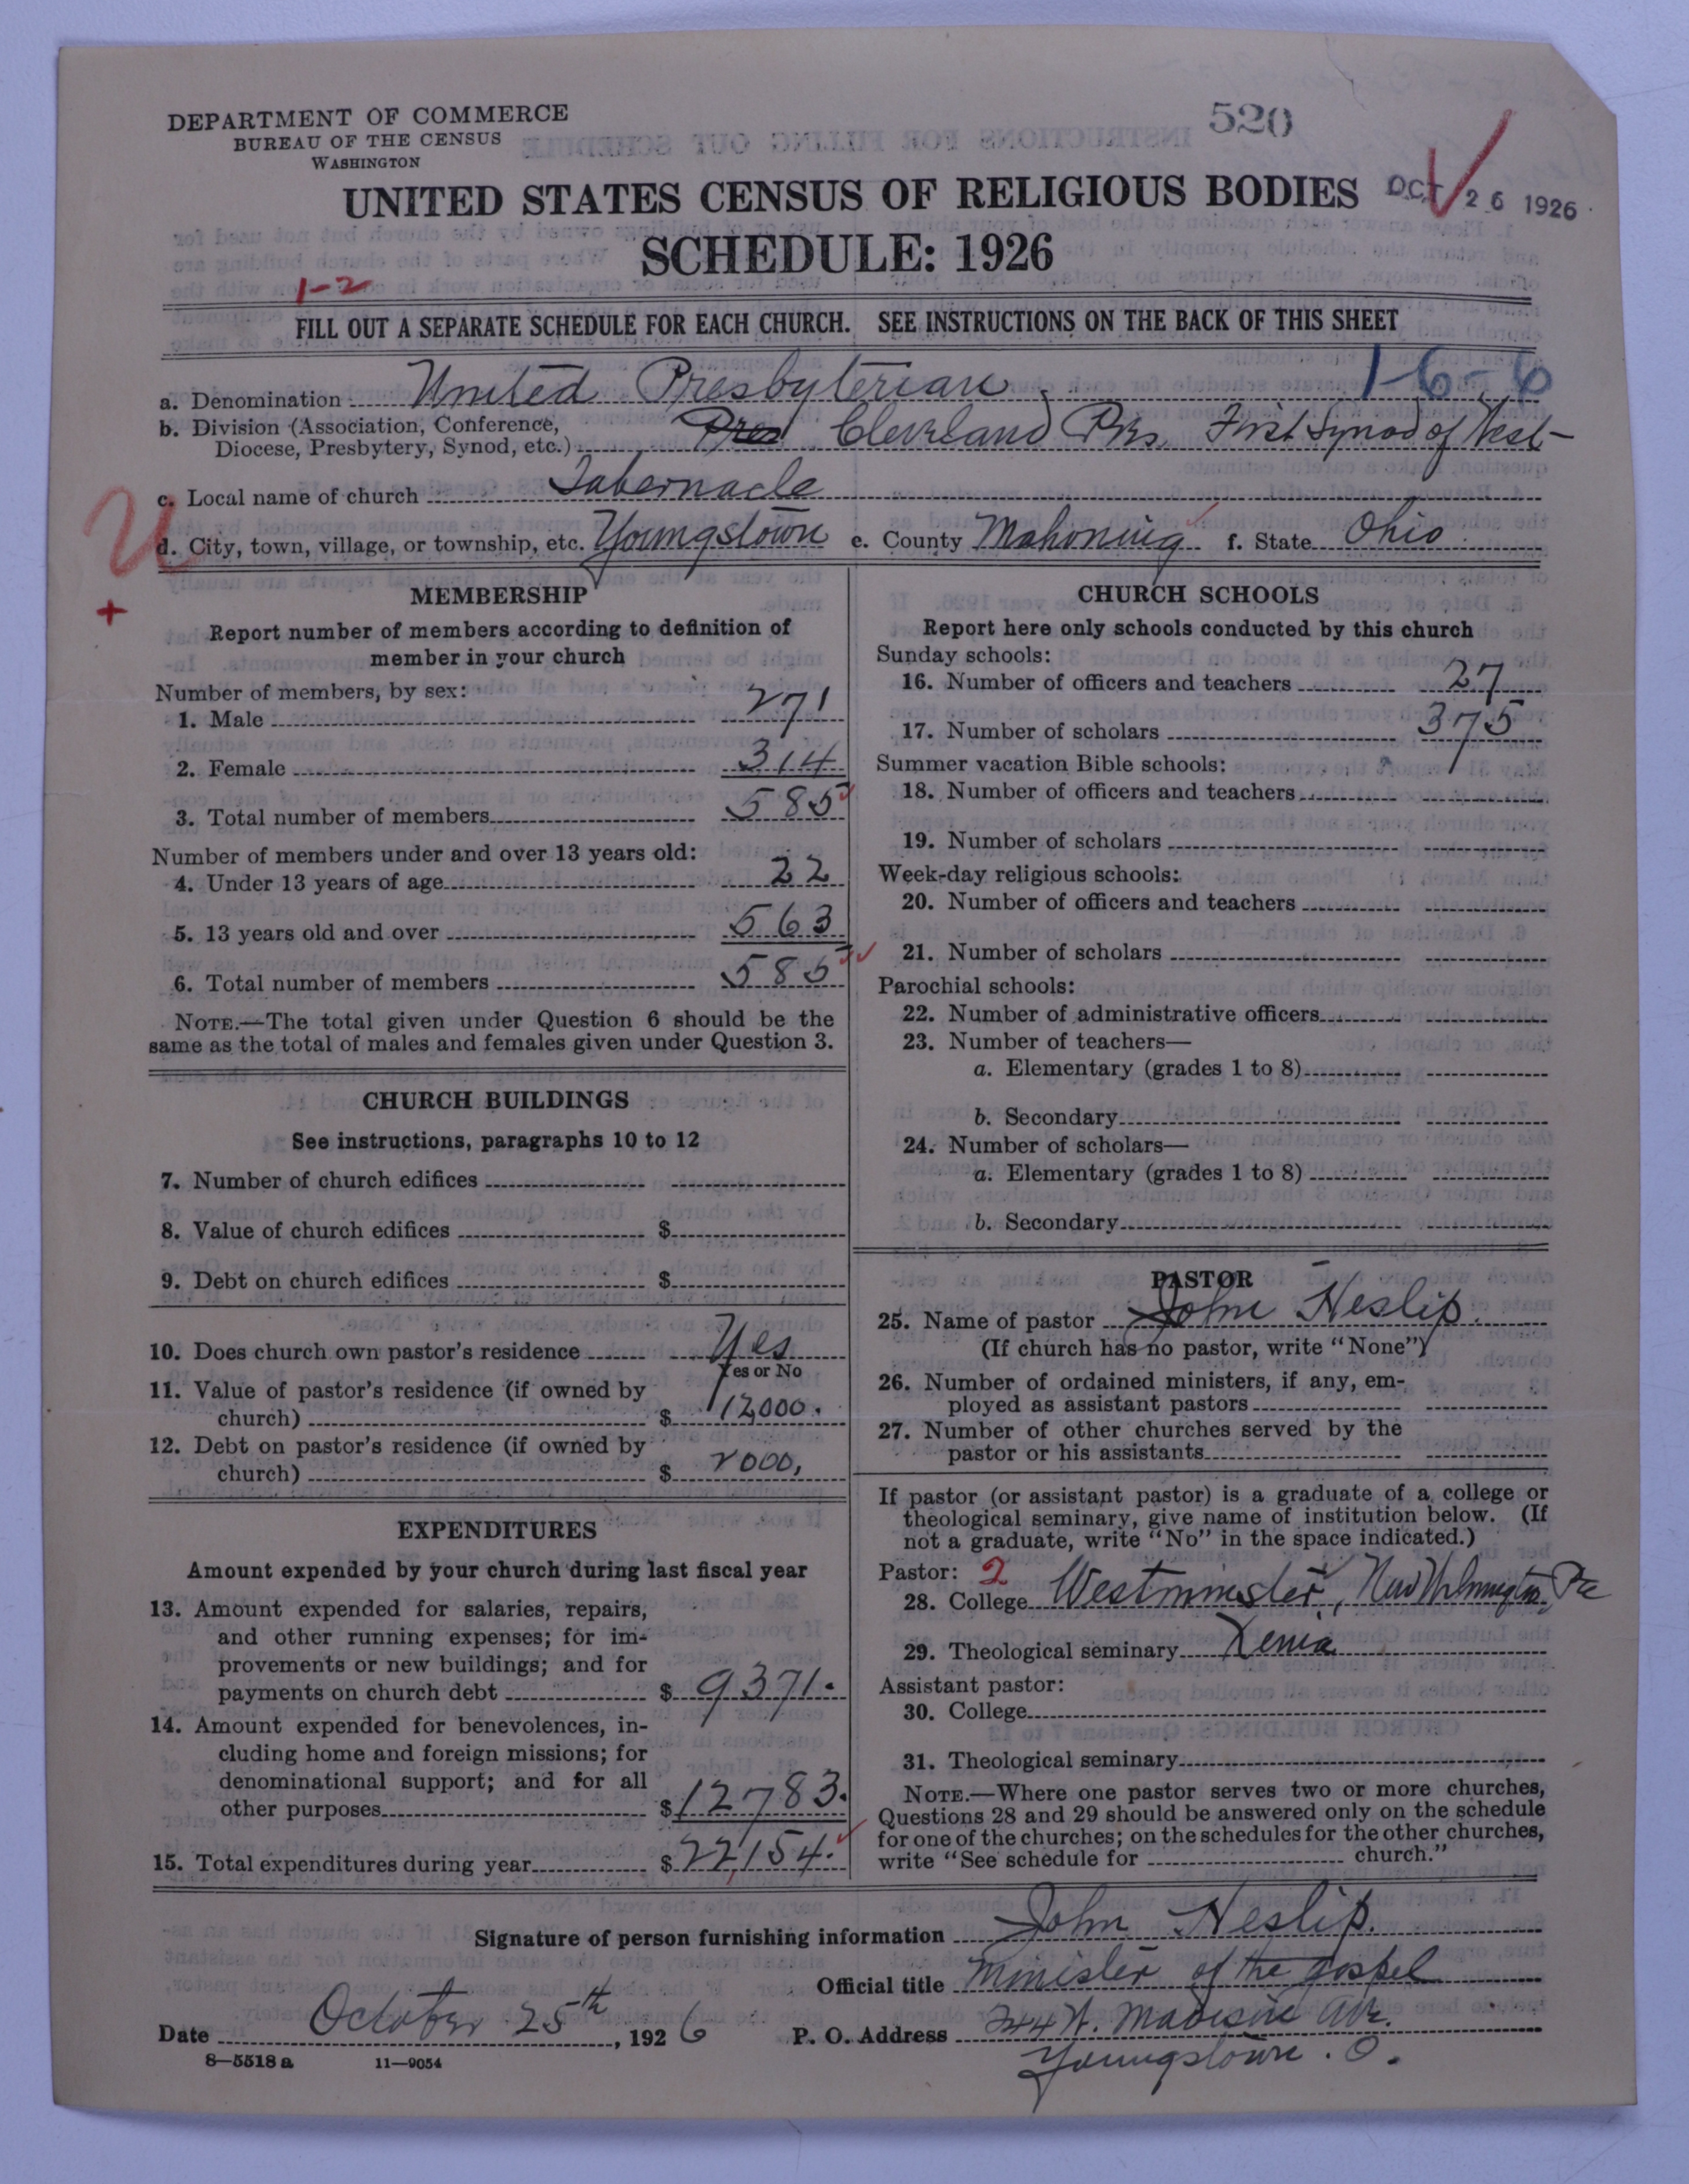 520
DEPARTMENT OF COMMERCE
BUREAU OF THE CENSUS
WASHINGTON
UNITED STATES CENSUS OF RELIGIOUS BODIES
OCT 26 1926
SCHEDULE: 1926
1-2
FILL OUT A SEPARATE SCHEDULE FOR EACH CHURCH. SEE INSTRUCTIONS ON THE BACK OF THIS SHEET
1-6-6
a. Denomination United Presbyterian
b. Division (Association, Conference,
Diocese, Presbytery, Synod, etc.) Pres Cleveland Pres. First Synod of West-
c. Local name of church Tabernacle
U
d. City, town, village, or township, etc. Youngstown e. County Mahoning f. State Ohio
+
MEMBERSHIP
Report number of members according to definition of
member in your church
Number of members, by sex:
1. Male 271
2. Female 314
3. Total number of members 585
Number of members under and over 13 years old:
4. Under 13 years of age 22
5. 13 years old and over 563
6. Total number of members 585
NOTE.—The total given under Question 6 should be the
same as the total of males and females given under Question 3.
CHURCH BUILDINGS
See instructions, paragraphs 10 to 12
7. Number of church edifices
8. Value of church edifices $
9. Debt on church edifices $
10. Does church own pastor's residence Yes
Yes or No
11. Value of pastor's residence (if owned by
church) $ 12,000.
12. Debt on pastor's residence (if owned by
church) $ 2000,
EXPENDITURES
Amount expended by your church during last fiscal year
13. Amount expended for salaries, repairs,
and other running expenses; for im-
provements or new buildings; and for
payments on church debt $ 9371.
14. Amount expended for benevolences, in-
cluding home and foreign missions; for
denominational support; and for all
other purposes $ 12783.
15. Total expenditures during year $ 22,154.
CHURCH SCHOOLS
Report here only schools conducted by this church
Sunday schools:
16. Number of officers and teachers 27
17. Number of scholars 375
Summer vacation Bible schools:
18. Number of officers and teachers
19. Number of scholars
Week-day religious schools:
20. Number of officers and teachers
21. Number of scholars
Parochial schools:
22. Number of administrative officers
23. Number of teachers—
a. Elementary (grades 1 to 8)
b. Secondary
24. Number of scholars—
a. Elementary (grades 1 to 8)
b. Secondary
PASTOR
25. Name of pastor John Heslip.
(If church has no pastor, write "None")
26. Number of ordained ministers, if any, em-
ployed as assistant pastors
27. Number of other churches served by the
pastor or his assistants
If pastor (or assistant pastor) is a graduate of a college or
theological seminary, give name of institution below. (If
not a graduate, write "No" in the space indicated.)
Pastor: 2
28. College Westminster, New Wilmington, Pa
29. Theological seminary Xenia
Assistant pastor:
30. College
31. Theological seminary
NOTE.—Where one pastor serves two or more churches,
Questions 28 and 29 should be answered only on the schedule
for one of the churches; on the schedules for the other churches,
write "See schedule for church."
Signature of person furnishing information John Heslip.
Official title Minister of the Gospel
Date October 25th, 1926 P. O. Address 244 W. Madison Ave.
Youngstown. O.
8—5518 a 11—9054